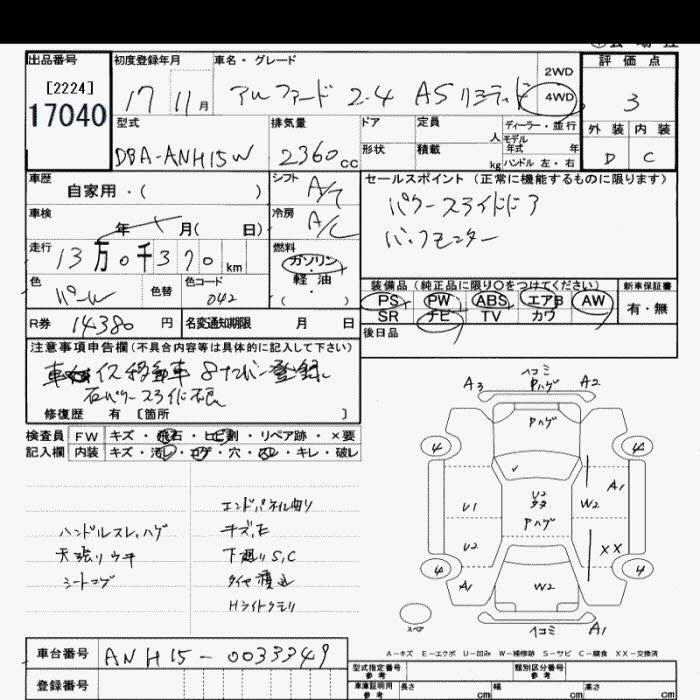 出品番号
[2224]
17040
初度登録年月
17 11月
車名・グレード
アルファード 2.4 AS リミテッド
2WD
4WD
評価点
3
外装 内装
D C
型式
DBA-ANH15W
排気量
2360cc
ドア
形状
定員
人
積載
kg
ディーラー・並行
モデル
年式 年
ハンドル 左・右
車歴
自家用・( )
シフト
A/T
セールスポイント(正常に機能するものに限ります)
パワースライドドア
バックモニター
車検
年 月( 日)
冷房
A/C
走行
13万0千370km
燃料
ガソリン
軽油
( )
色
パール
色替
色コード
042
装備品(純正品に限り〇をつけてください)
PS PW ABS エアB AW
SR ナビ TV カワ
新車保証書
有・無
R券 14380円
名変通知期限 月 日
後日品
注意事項申告欄(不具合内容等は具体的に記入して下さい)
車イス移動車 8ナンバー登録
右パワースライド不良
修復歴 有 [箇所 ]
検査員
記入欄
FW キズ・飛石・ヒビ割・リペア跡・×要
内装 キズ・汚レ・コゲ・穴・スレ・キレ・破レ
ハンドルスレ、ハゲ
天張りウキ
シートコゲ
エンドパネル曲り
キズ、E
下廻りS,C
Hライトクモリ
A3
ヘコミ
Pハゲ
A2
Pハゲ
4
4
U1
U2
Pハゲ
W2
A1
U2
XX
4
4
A1
W2
スペア
ヘコミ
A1
A-キズ E-エクボ U-凹み W-補修跡 S-サビ C-腐食 XX-交換済
車台番号
ANH15-0033349
登録番号
型式指定番号
参考
類別区分番号
参考
車庫証明用
参考
長さ cm
幅 cm
高さ cm